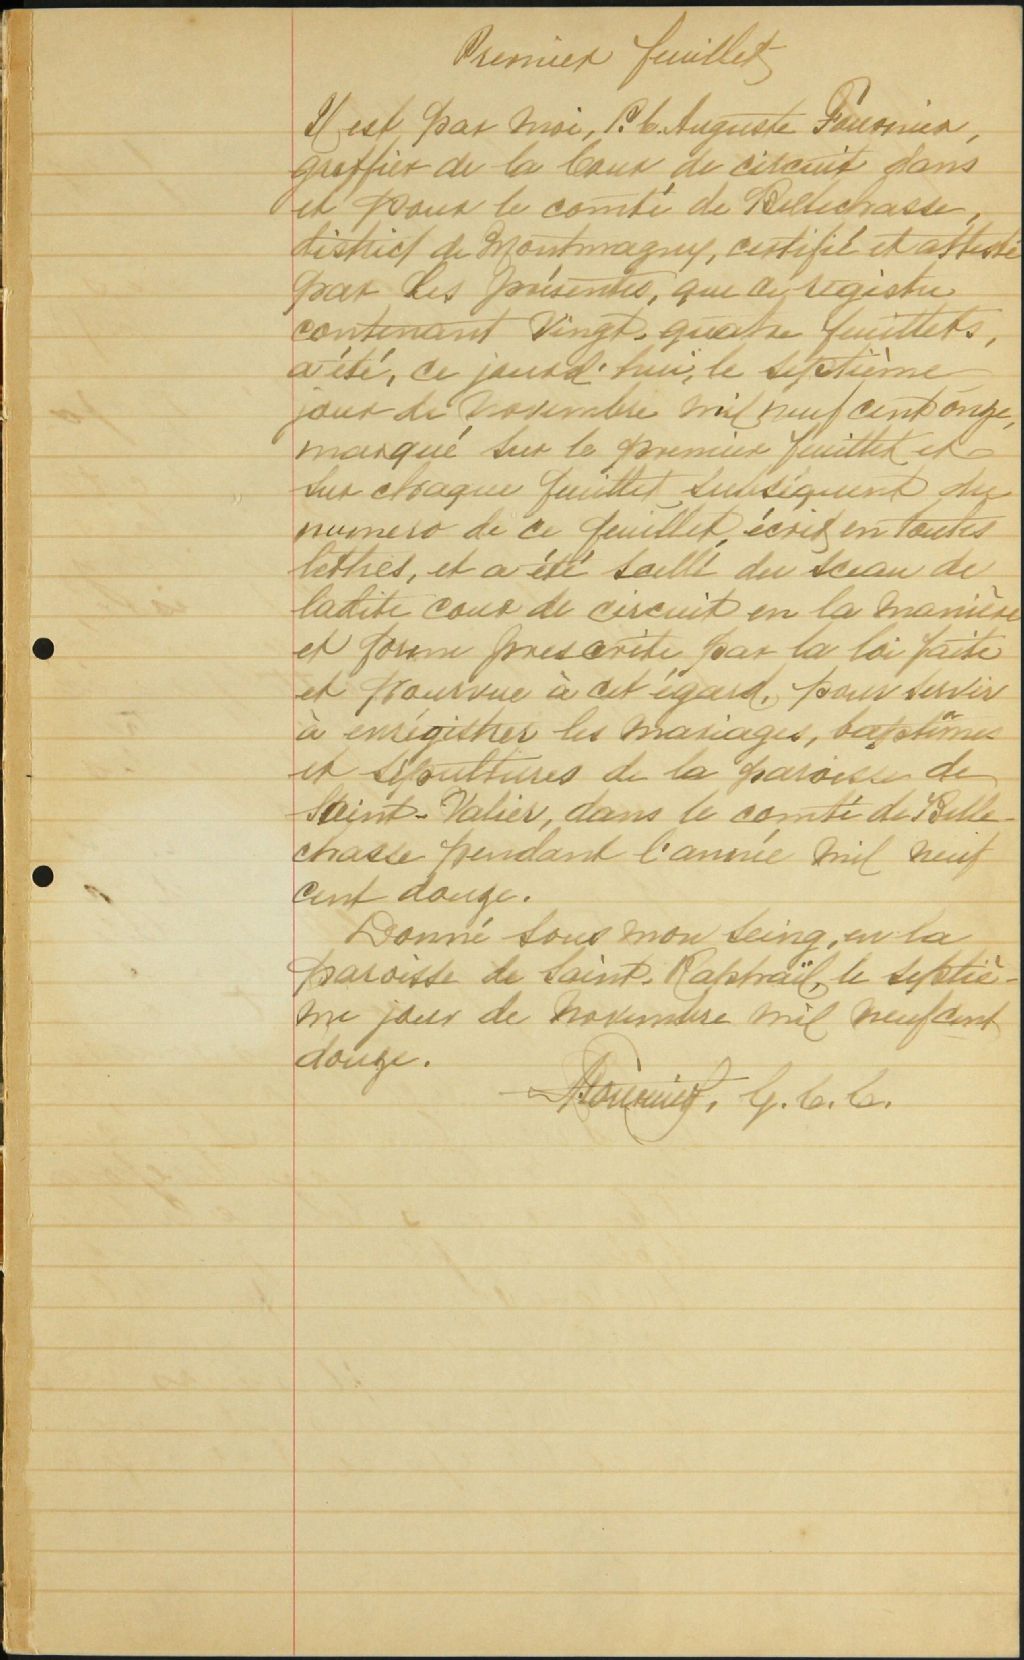 Premier feuillet
Il est par moi, P. C. Auguste Fournier,
greffier de la Cour de circuit dans
et pour le comté de Bellechasse,
district de Montmagny, certifié et attesté
par les présentes, que ce registre
contenant vingt-quatre feuillets,
a été, ce jourd'hui, le septième
jour de novembre mil neuf cent onze,
marqué sur le premier feuillet et
sur chaque feuillet subséquent du
numero de ce feuillet, écrit en toutes
lettres, et a été scellé du sceau de
ladite cour de circuit en la manière
et forme prescrite par la loi faite
et pourvue à cet égard, pour servir
à enrégistrer les mariages, baptêmes
et sépultures de la paroisse de
Saint-Valier, dans le comté de Belle-
chasse pendant l'année mil neuf
cent douze.
Donné sous mon seing, en la
paroisse de Saint-Raphaël, le septiè-
me jour de novembre mil neuf cent
douze.
Fournier, G. C. C.